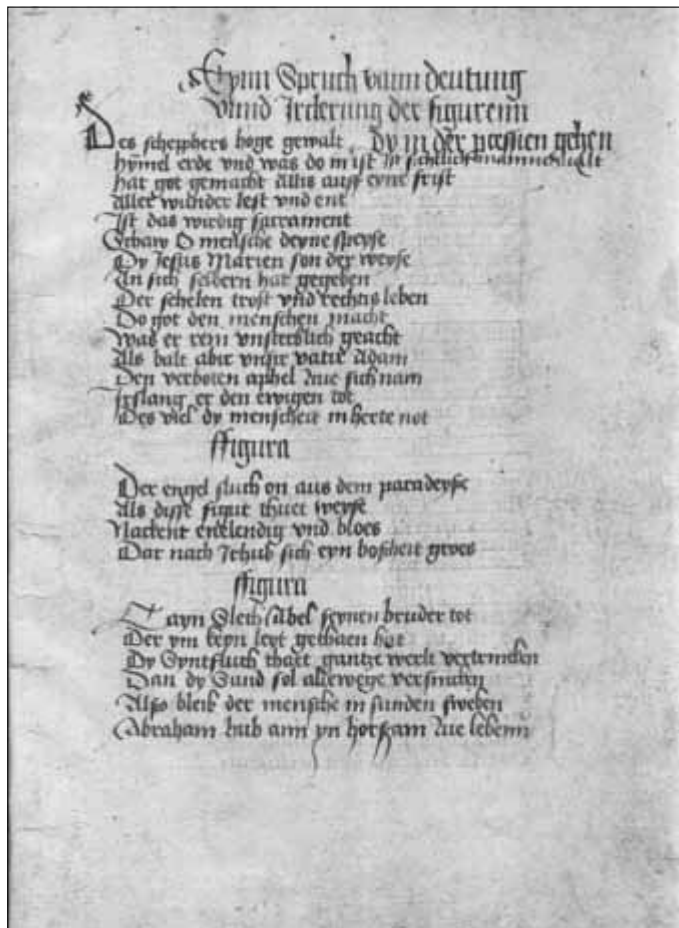 Eynn Spruch vonn deutung
vnnd Irclerung der figurenn
dy in der procession gehen
Des schepphers hoge gewalt
hymel erde vnd was do in ist
hat got gemacht Allis auff eyne frist
Aller wunder lest vnd ent
Ist das wirdig sacrament
Schaw O mensche deyne speyse
Dy Jesus Marien son der weyse
An sich selbern hat gegeben
Der schelen trost vnd rechtis leben
Do got den menschen macht
Was er rein vnsterblich geacht
Als balt abir vnsir vatir Adam
Den verboten aphel zue sich nam
er den ewigen tot
Des viel dy menscheit in herte not
ffigura
Der engel sluch on aus dem paradeyse
Als disse figur thuet weyse
Nackent enelendig vnd bloes
Dar nach irhub sich eyn boßheit groes
ffigura
Cayn Sleth Abel seynen bruder tot
Der ym keyn leyt gethaen hot
Dy Syntfluth thaet gantze werlt vertrincken
Dan dy Sund sol allewege versincken
Alßo bleib der mensche in sunden sweben
Abraham hub ann yn horsam zue lebenn